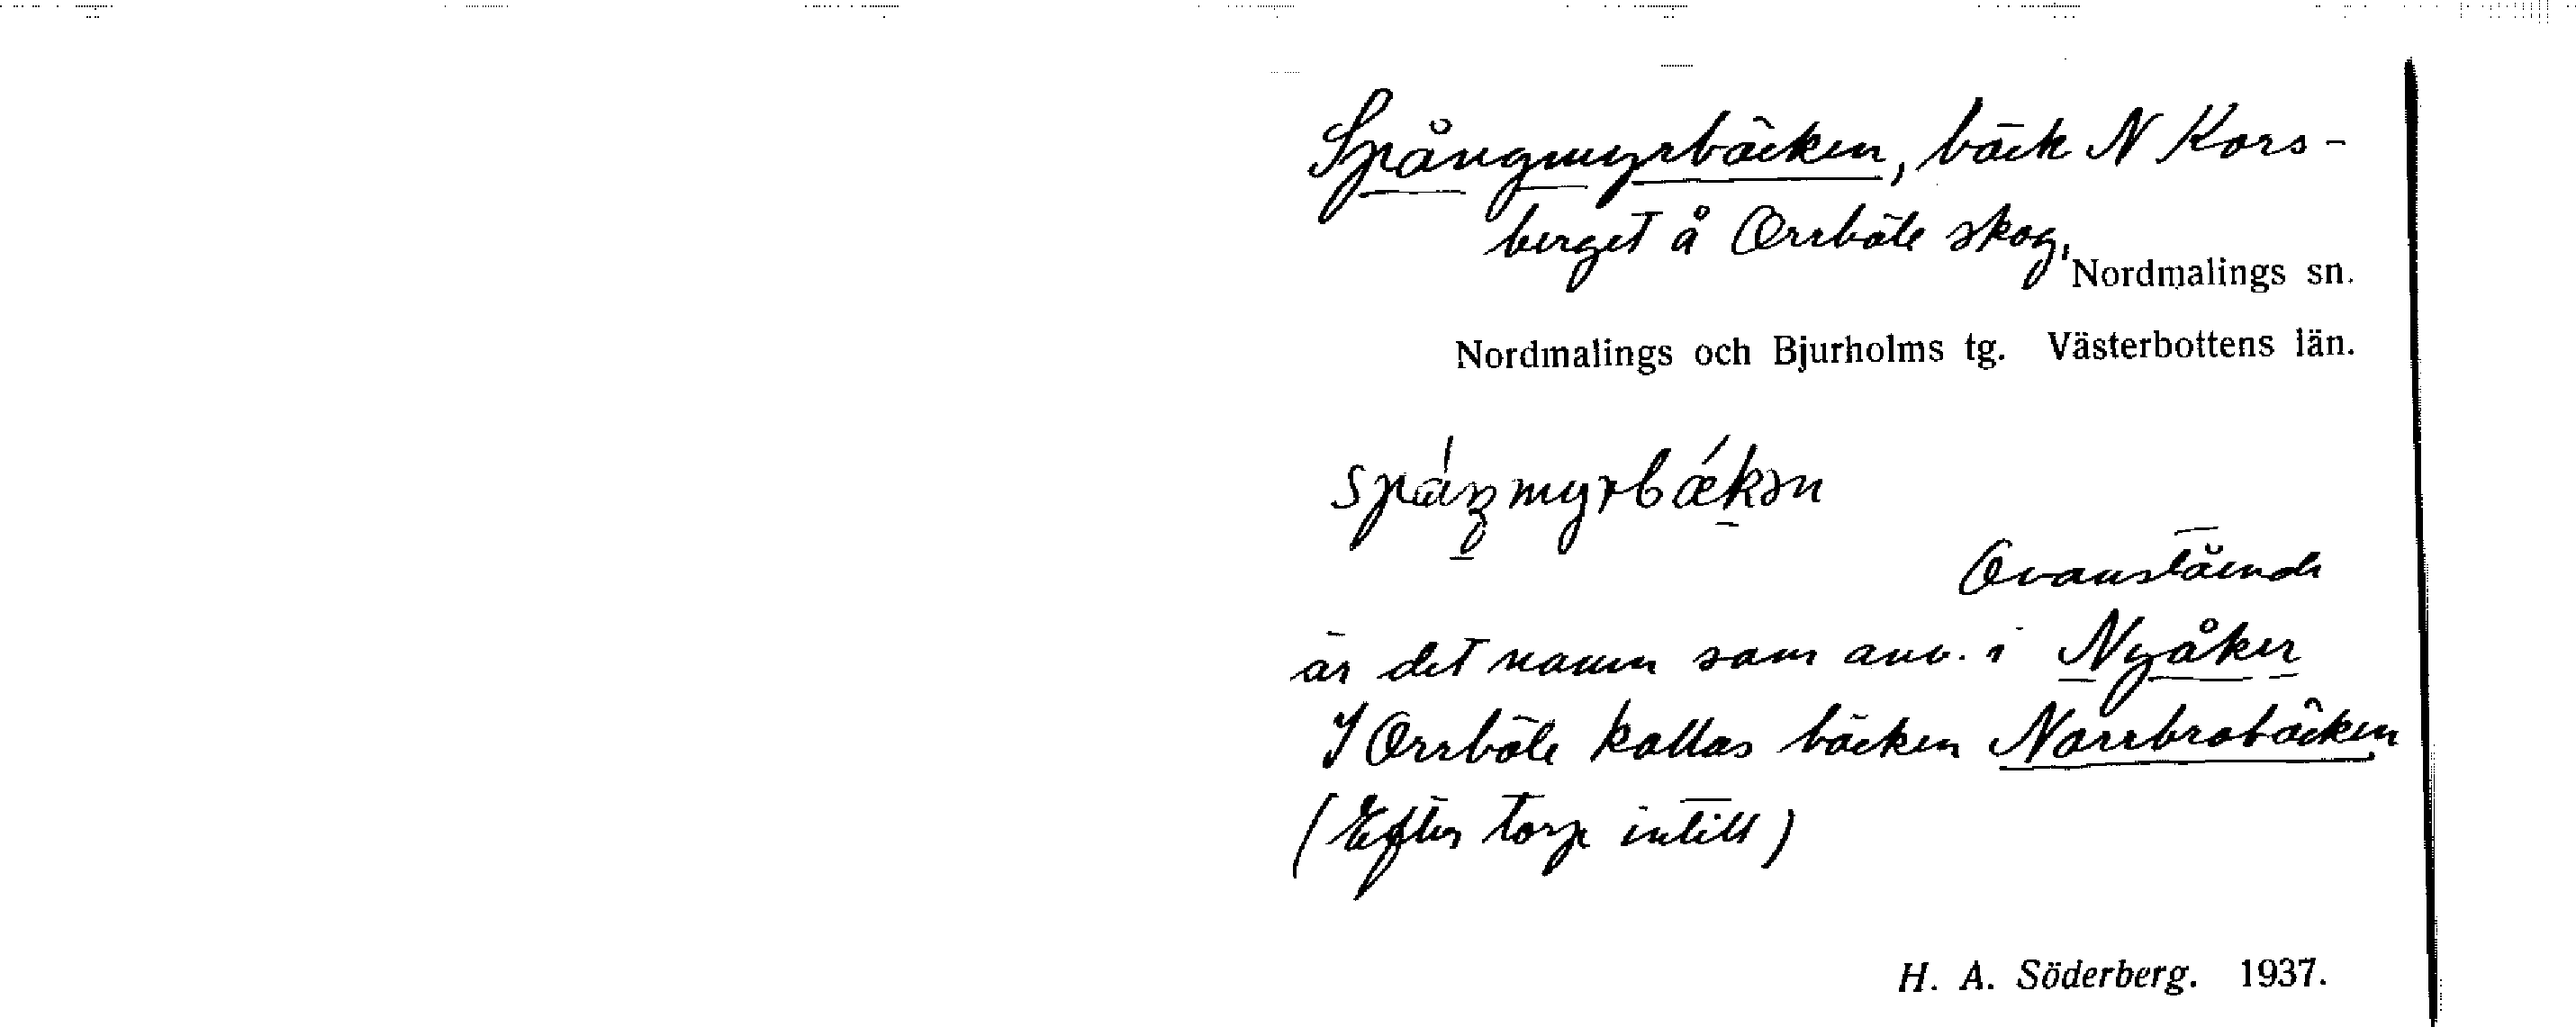 Spångmyrbäcken, bäck N Kors-
berget å Orrböle skog,
Nordmalings sn.
Nordmalings och Bjurholms tg. Västerbottens län.
spáŋmyrbǽkən
Ovanstående
är det namn som anv. i Nyåker
I Orrböle kallas bäcken Norrbrobäcken
(Efter torp intill)
H. A. Söderberg. 1937.